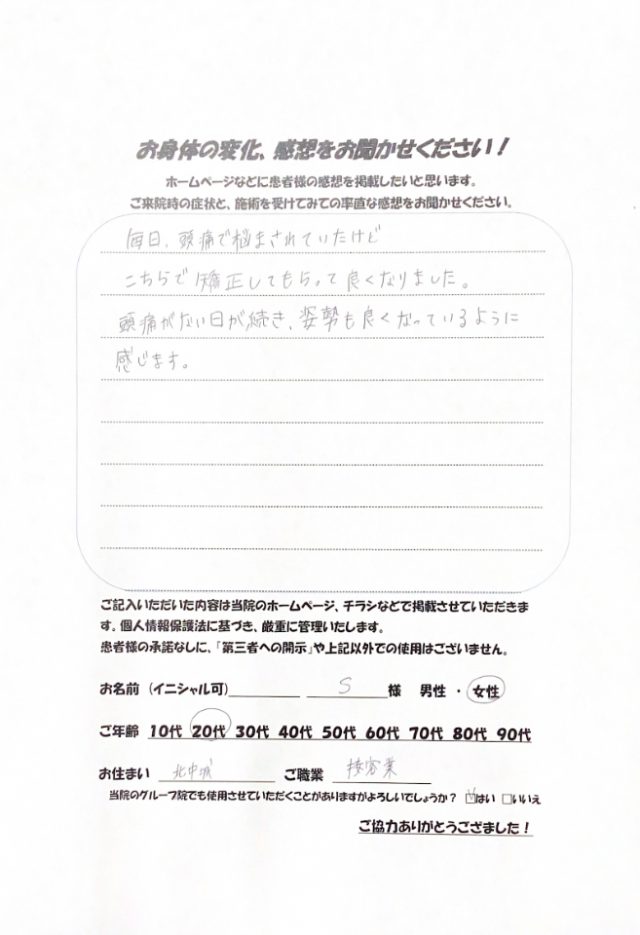 お身体の変化、感想をお聞かせください！
ホームページなどに患者様の感想を掲載したいと思います。
ご来院時の症状と、施術を受けてみての率直な感想をお聞かせください。
毎日、頭痛で悩まされていたけど
こちらで矯正してもらって良くなりました。
頭痛がない日が続き、姿勢も良くなっているように
感じます。
ご記入いただいた内容は当院のホームページ、チラシなどで掲載させていただきま
す。個人情報保護法に基づき、厳重に管理いたします。
患者様の承諾なしに、「第三者への開示」や上記以外での使用はございません。
お名前（イニシャル可） S 様 男性 ・ 女性
ご年齢 10代 20代 30代 40代 50代 60代 70代 80代 90代
お住まい 北中城 ご職業 接客業
当院のグループ院でも使用させていただくことがありますがよろしいでしょうか？ ☑はい □いいえ
ご協力ありがとうござました！